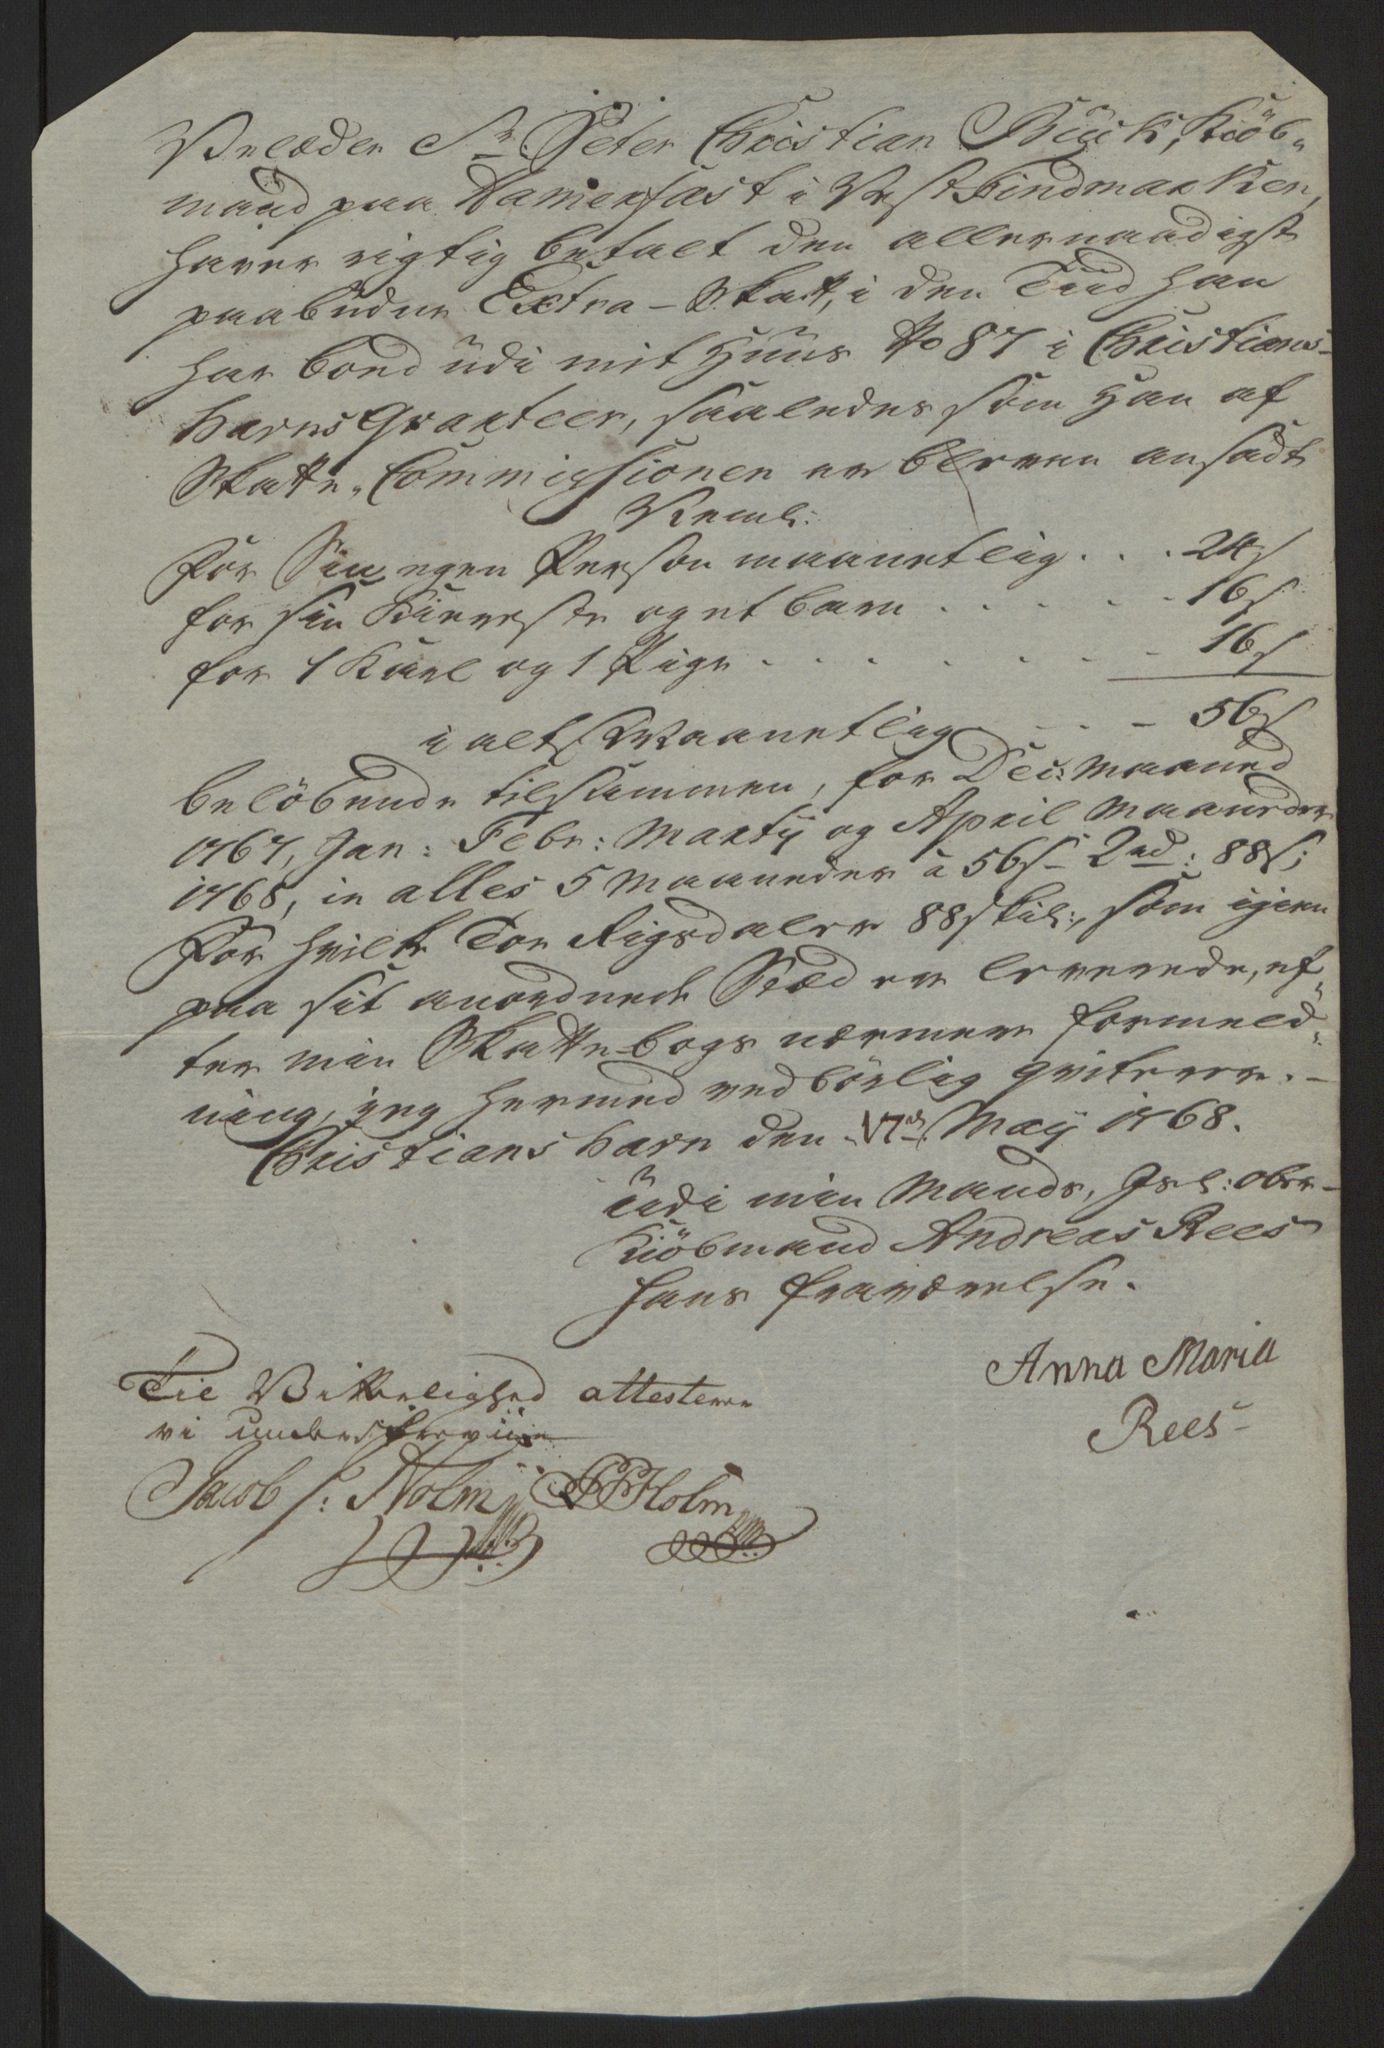 Velædle Sr. Peter Christian Büük, Kiöb-
mand paa Hamerfæst i Vest Findmarken,
haver rigtig betalt den allernaadigst
paabudne Extra-Skatt, i den Tiid han
har boed udi mit Huus No 87 i Christians-
havns Qvarteer, saaledes som Han af
Skatte-Commissionen er bleven ansadt
Neml:
For Sin egen Person maanetlig . . . 24 s
for sin Kiereste og et barn . . . . . . 16 s
for 1 Karl og 1 Pige . . . . . . . . 16 s
i alt Maanetlig . . . 56 s
belöbende tilsammen, for Dec: Maaned
1767, Jan: Febr: Martij og April Maaneder
1768, in alles 5 Maaneder a 56 s - 2 rd: 88 s;
For hvilke Toe Rigsdaler 88 skil:, som igien
paa sit anordnede Stæd er leverede, ef-
ter min Skatte-bogs nærmere formeld-
ning, jeg hermed vedbörlig qviterer. -
Christianshavn den 17de May 1768.
Udi min Mands, Isl: Ober-
Kiöbmand Andreas Rees
hans fraværelse.
Anna Maria
Rees
Til Vitterlighed attesterer
vi underskrevne
Jacob s: Holm PPHolm